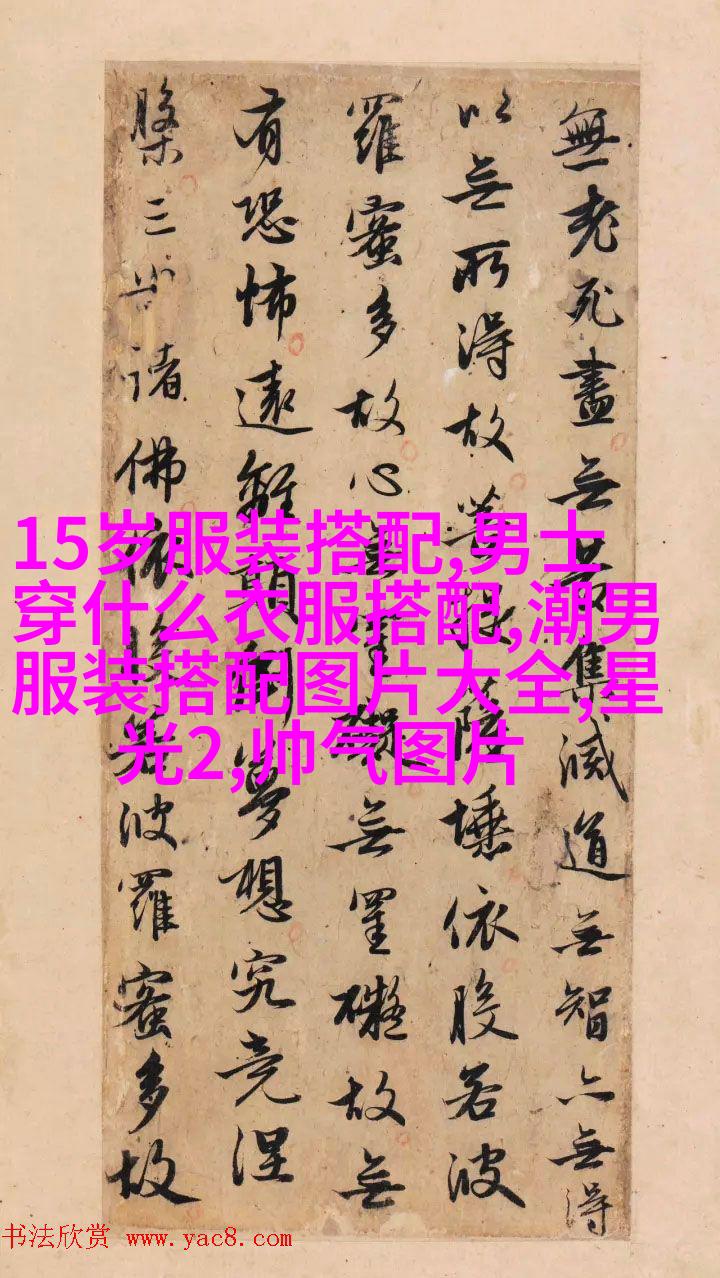 無老死盡无苦集滅道无智亦无得
以无所得故菩提薩埵依般若波
羅蜜多故心無罣礙无罣礙故无
有恐怖遠離顛倒夢想究竟涅
槃三世諸佛依般若波羅蜜多故
15岁服装搭配,男士
穿什么衣服搭配,潮男
服装搭配图片大全,星
光2,帅气图片
书法欣赏 www.yac8.com